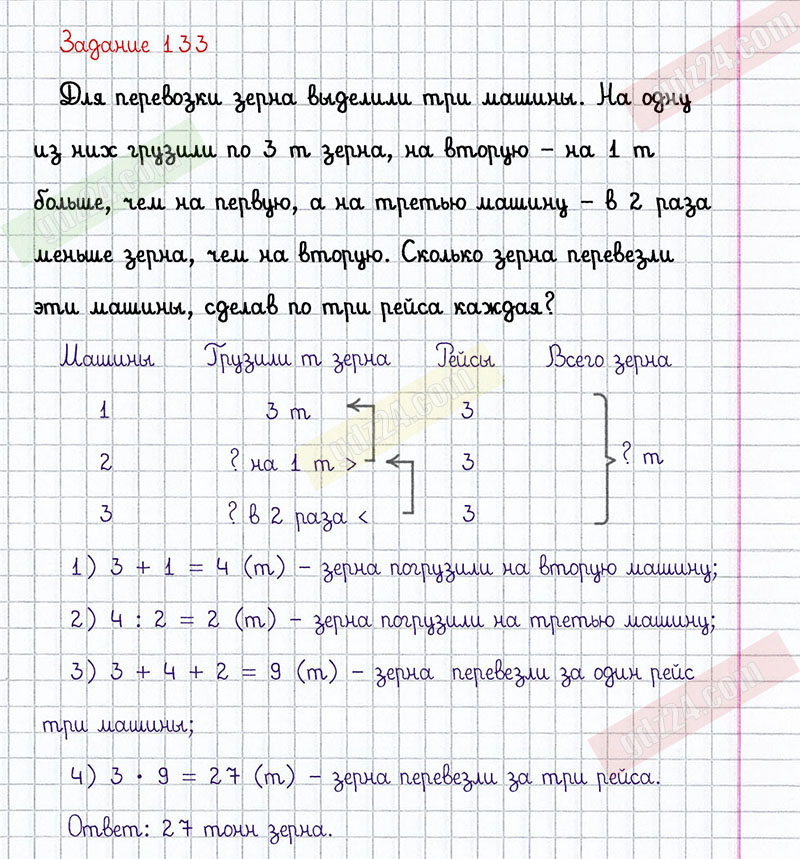 Задание 133
Для перевозки зерна выделили три машины. На одну
из них грузили по 3 т зерна, на вторую – на 1 т
больше, чем на первую, а на третью машину – в 2 раза
меньше зерна, чем на вторую. Сколько зерна перевезли
эти машины, сделав по три рейса каждая?
Машины Грузили т зерна Рейсы Всего зерна
1 3 т 3
2 ? на 1 т > 3 ? т
3 ? в 2 раза < 3
1) 3 + 1 = 4 (т) – зерна погрузили на вторую машину;
2) 4 : 2 = 2 (т) – зерна погрузили на третью машину;
3) 3 + 4 + 2 = 9 (т) – зерна перевезли за один рейс
три машины;
4) 3 · 9 = 27 (т) – зерна перевезли за три рейса.
Ответ: 27 тонн зерна.
gdz24.com
gdz24.com
gdz24.com
gdz24.com